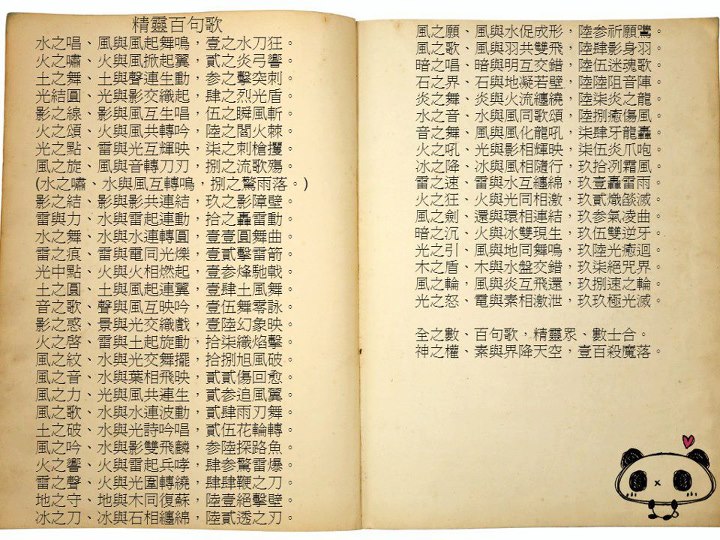 精靈百句歌
水之唱、風與風起舞鳴，壹之水刀狂。
火之嘯、火與風掀起翼，貳之炎弓響。
土之舞、土與聲連生動，参之擊突刺。
光結圓、光與影交織起，肆之烈光盾。
影之線、影與風互生唱，伍之瞬風斬。
火之頌、火與風共轉吟，陸之閣火棘。
光之點、雷與光互輝映，柒之刺槍攫。
風之旋、風與音轉刀刃，捌之流歌殤。
(水之嘯、水與風互轉鳴，捌之驚雨落。)
影之結、影與影共連結，玖之影障壁。
雷與力、水與雷起連動，拾之轟雷動。
水之舞、水與水連轉圓，壹壹圓舞曲。
雷之痕、雷與電同光爍，壹貳擊雷箭。
光中點、火與火相燃起，壹参烽馳戟。
土之圓、土與風起連翼，壹肆土風舞。
音之歌、聲與風互映吟，壹伍舞零詠。
影之惑、景與光交織戲，壹陸幻象映。
火之啓、雷與土起旋動，拾柒織焰擊。
風之紋、水與光交舞擺，拾捌旭風破。
風之音、水與葉相飛映，貳貳傷回愈。
風之力、光與風共連生，貳参追風翼。
風之歌、水與水連波動，貳肆雨刃舞。
土之破、水與光詩吟唱，貳伍花輪轉。
風之吟、水與影雙飛麟，参陸探路魚。
火之響、火與雷起兵哮，肆参驚雷爆。
雷之聲、火與光圍轉繞，肆肆鞭之刀。
地之守、地與木同復蘇，陸壹絕擊壁。
冰之刀、冰與石相纏綿，陸貳透之刃。
風之願、風與水促成形，陸参祈願鷹。
風之歌、風與羽共雙飛，陸肆影身羽。
暗之唱、暗與明互交錯，陸伍迷魂歌。
石之界、石與地凝若壁，陸陸阻音陣。
炎之舞、炎與火流纏繞，陸柒炎之龍。
水之音、水與風同歌頌，陸捌癒傷風。
音之舞、風與風化龍吼，柒肆牙龍轟。
火之吼、光與影相輝映，柒伍炎爪咆。
冰之降、冰與風相隨行，玖拾冽霜風。
雷之速、雷與水互纏綿，玖壹轟雷雨。
火之狂、火與光同相激，玖貳熾燄滅。
風之劍、還與環相連結，玖参氣凌曲。
暗之沉、火與冰雙現生，玖伍雙逆牙。
光之引、風與地同舞鳴，玖陸光癒迴。
木之盾、木與水盤交錯，玖柒絕咒界。
風之輪、風與炎互飛還，玖捌速之輪。
光之怒、電與素相激泄，玖玖極光滅。
全之數、百句歌，精靈眾、數士合。
神之權、素與界降天空，壹百殺魔落。